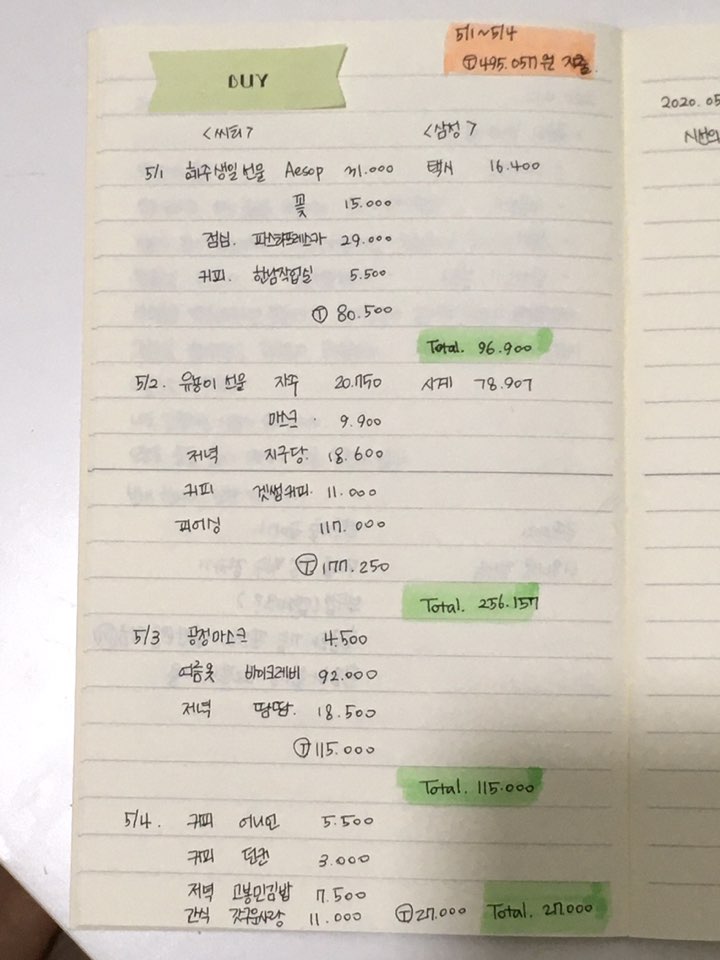 5/1~5/4
Ⓣ495.057원 지출.
BUY
<씨티>
<삼성>
5/1 혜주생일선물 Aesop 31.000 택시 16.400
꽃 15.000
점심. 파스타프레스카 29.000
커피. 한남작업실 5.500
Ⓣ 80.500
Total. 96.900
5/2. 선물 자주 20.750 시계 78.907
마스크 9.900
저녁 지구당 18.600
커피 겟썸커피. 11.000
피어싱 117.000
Ⓣ177.250
Total. 256.157
5/3 공적마스크 4.500
여름옷 92.000
저녁 땀땀. 18.500
Ⓣ115.000
Total. 115.000
5/4. 커피 어니언 5.500
커피 던킨 3.000
저녁 고봉민김밥 7.500
간식 갓구운사랑 11.000 Ⓣ27.000 Total. 27.000
2020.05